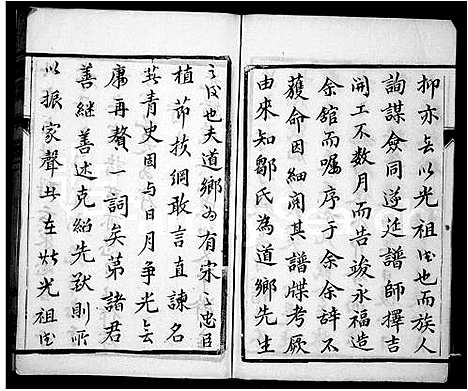 抑亦無以光祖德也而族人
詢謀僉同遂廷譜師擇吉
開工不数月而告竣永福造
余館而嘱序于余余辞不
獲命因細閱其譜牒考厥
由來知鄒氏為道鄉先生
之後也夫道鄉為有宋之忠臣
植節扶綱敢言直諫名
垂青史固与日月争光無
庸再贅一詞矣第諸君
善継善述克紹先猷則所
以振家聲者在此光祖德